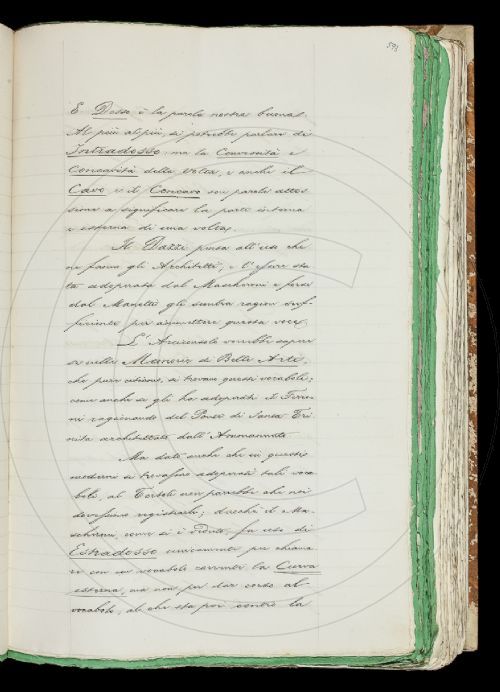 593
E Dosso è la parola nostra buona!
Al più al più, si potrebbe parlare di
Intradosso, ma la Convessità e
Concavità della volta, e anche il
Cavo e il Concavo son parole attis
sime a significare la parte interna
e esterna di una volta.
Il Dazzi pensa all'uso che
ne fanno gli Architetti, e l'essere sta
ta adoperata dal Mascheroni e forse
dal Manetti gli sembra ragion suf-
ficiente per ammettere questa voce.
L'Arciconsolo vorrebbe sapere
se nelle Memorie di Belle Arti,
che pure citiamo, si trovano questi vocaboli;
come anche se gli ha adoperati il Ferro
ni ragionando del Ponte di Santa Tri
nita architettato dall'Ammannato.
Ma dato anche che in questo
moderno si trovassero adoperati tali voca
boli, al Tortoli non parrebbe che noi
dovessimo registrarli; giacchè il Ma-
scheroni, come si è veduto, fa uso di
Estradosso unicamente per chiama
re con un vocabolo la Curva
esterna, ma non per dar corso al
vocabolo, al che sta poi contro la